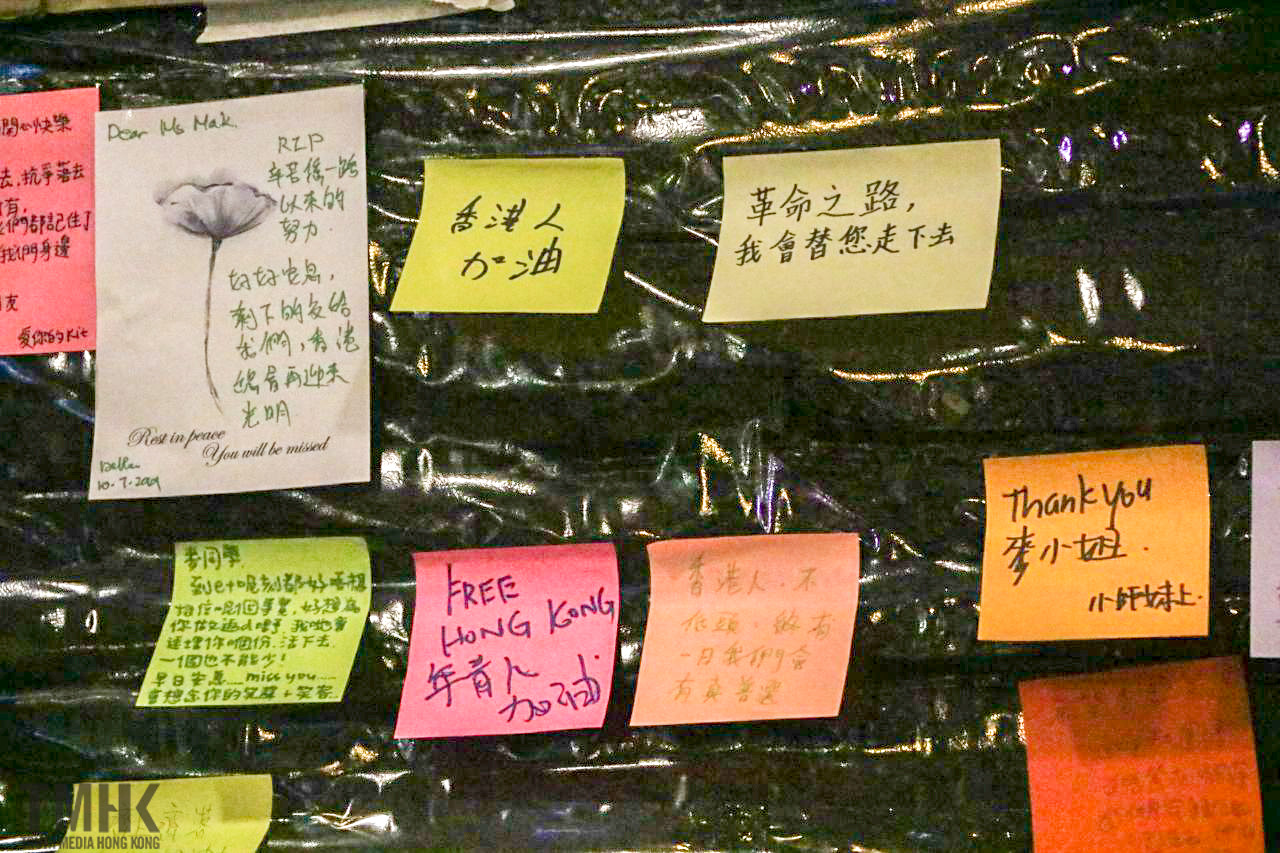 開心快樂
去,抗爭落去
有,
我們都記住了
我們身邊
友
愛你的Kit
Dear Ms Mak.
RIP
辛苦你一路
以來的
努力.
好好安息,
剩下的交給
我們,香港
總有再迎來
光明
Rest in peace
You will be missed
10.7.2019
香港人
加油
革命之路,
我會替您走下去
麥同學
相信呢個事實,好想為
你做返d嘢,我哋會
連埋你嗰份,活下去
一個也不能少!
早日安息...miss you....
會想念你的笑聲+笑容
FREE
HONG KONG
年青人
加油
香港人不
低頭,總有
一日我們會
有真普選
Thank you
麥小姐.
小師妹上.
TMHK
MEDIA HONG KONG